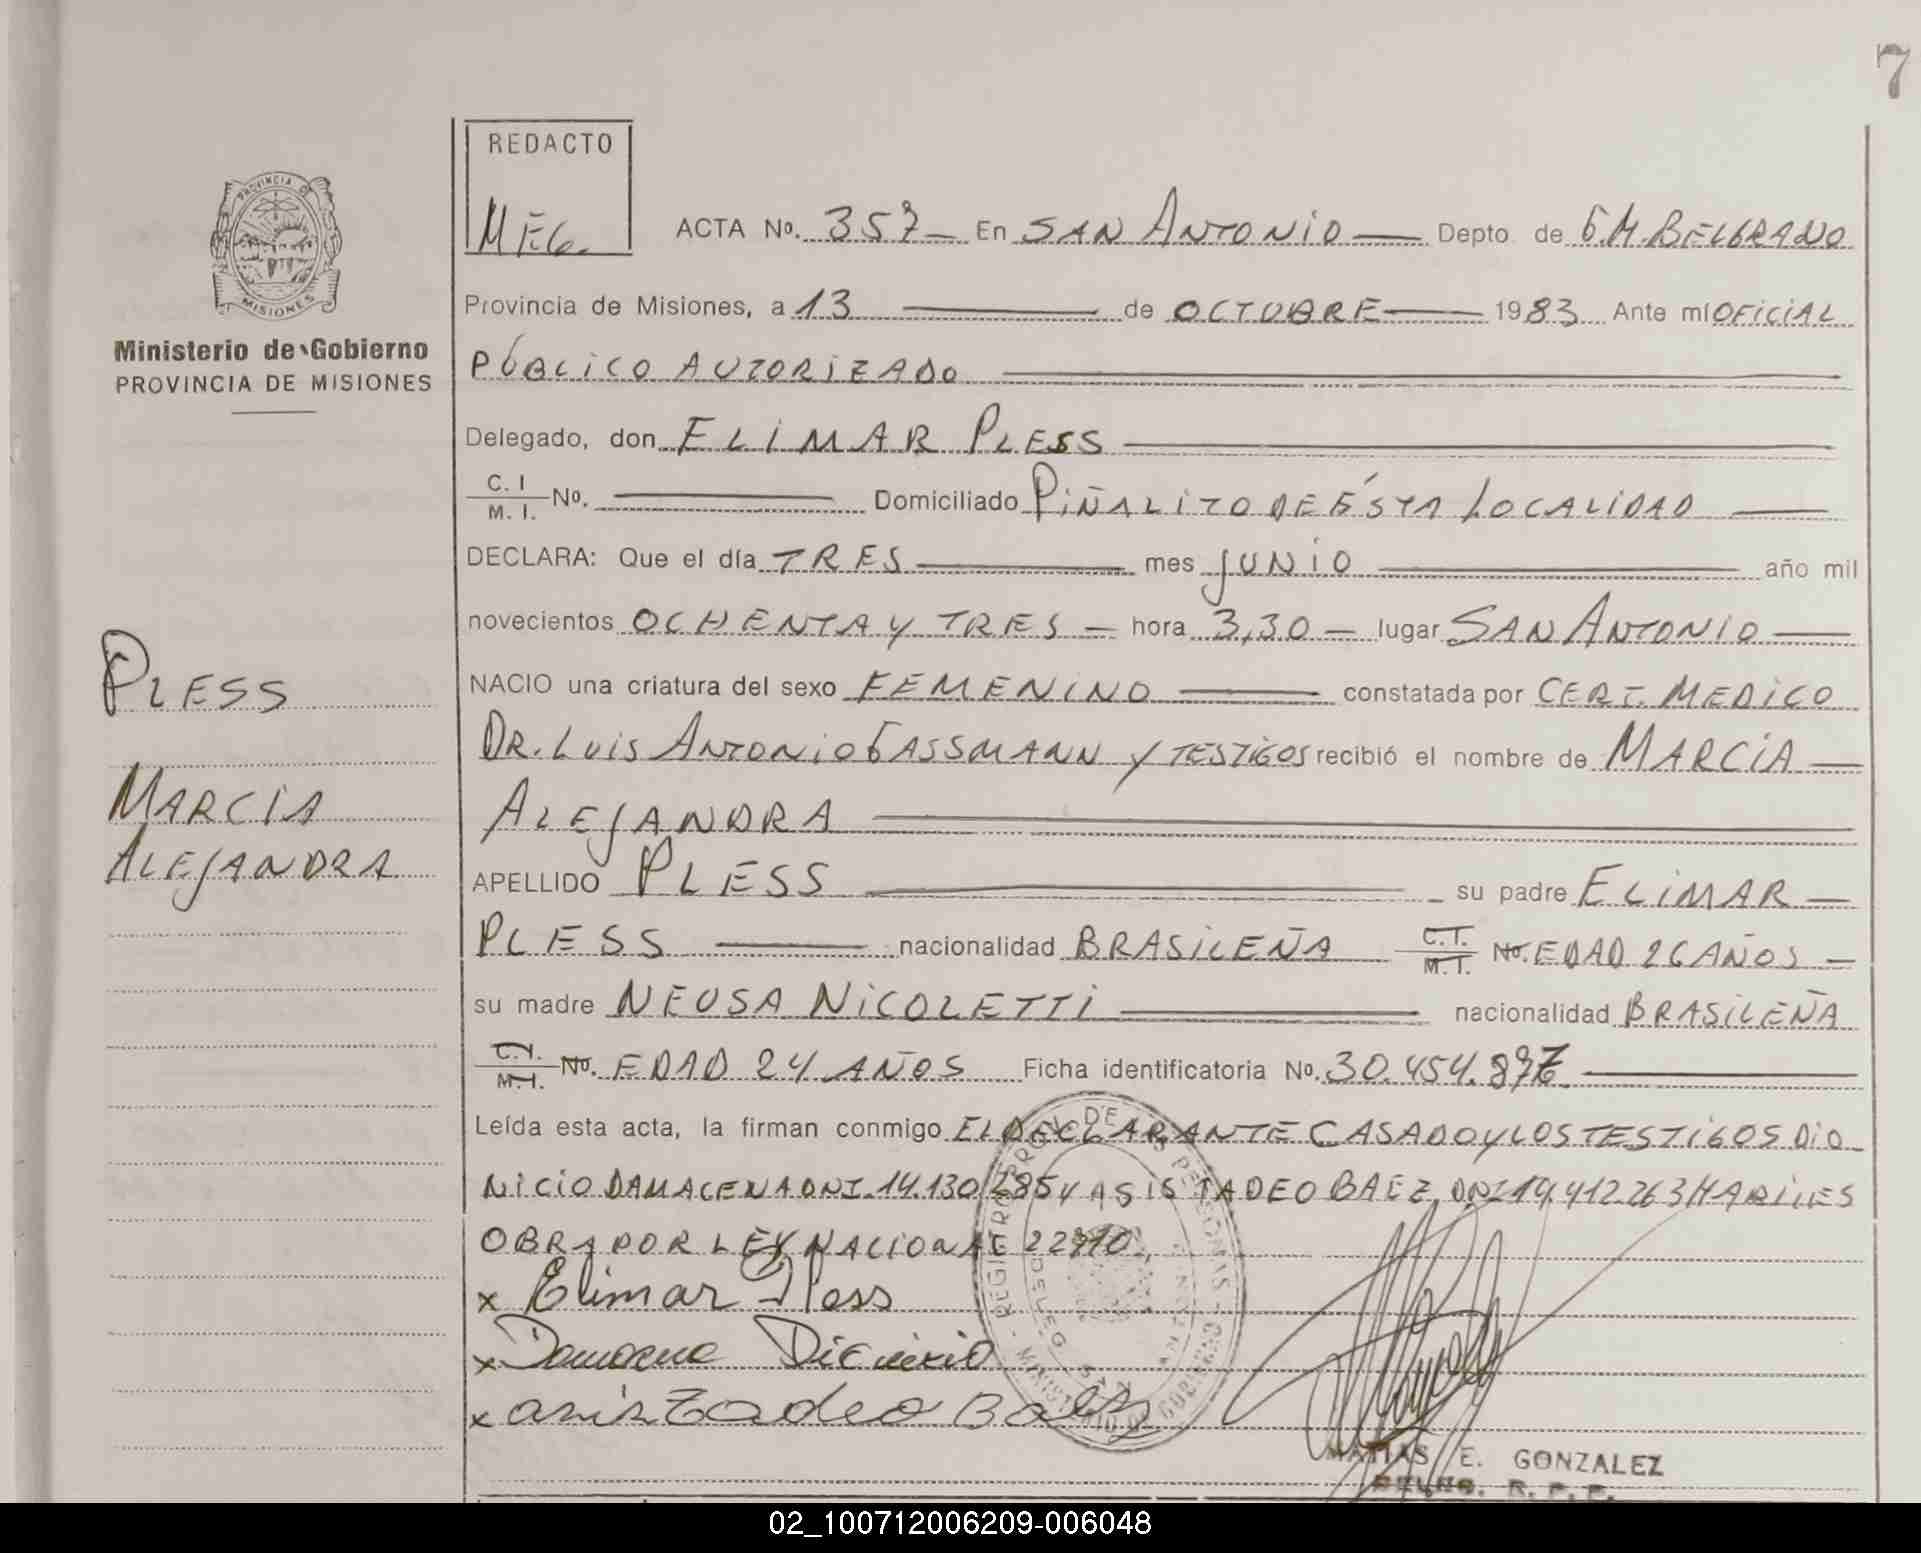 7
REDACTO
MEG.
PROVINCIA DE
MISIONES
Ministerio de Gobierno
PROVINCIA DE MISIONES
ACTA No. 357 En SAN ANTONIO Depto de G.M. BELGRANO
Provincia de Misiones, a 13 de OCTUBRE 1983 Ante mí OFICIAL
PÚBLICO AUTORIZADO
Delegado, don ELIMAR PLESS
C. I
M. I. No. Domiciliado PIÑALITO DE ÉSTA LOCALIDAD
DECLARA: Que el día TRES mes JUNIO año mil
novecientos OCHENTA Y TRES hora 3,30 lugar SAN ANTONIO
PLESS
NACIO una criatura del sexo FEMENINO constatada por CERT. MEDICO
DR. LUIS ANTONIO GASSMANN Y TESTIGOS recibió el nombre de MARCIA
MARCIA
ALEJANDRA
ALEJANDRA
APELLIDO PLESS su padre ELIMAR
PLESS nacionalidad BRASILEÑA C.I. M.I. No. EDAD 26 AÑOS
su madre NEUSA NICOLETTI nacionalidad BRASILEÑA
C.I. M.I. No. EDAD 24 AÑOS Ficha identificatoria No. 30.454.897
Leída esta acta, la firman conmigo EL DECLARANTE CASADO Y LOS TESTIGOS DIO
NICIO DAMACENA DNI. 14.130.285 Y ASIS TADEO BAEZ DNI 14.412.263 HABILES
OBRA POR LEY NACIONAL
x Elimar Pless
x Damacena Dionicio
x asis tadeo Baez
REGISTRO PROV. DE LAS PERSONAS
MINISTERIO DE GOBIERNO
MATIAS E. GONZALEZ
DELEG. R. P. P.
02_100712006209-006048